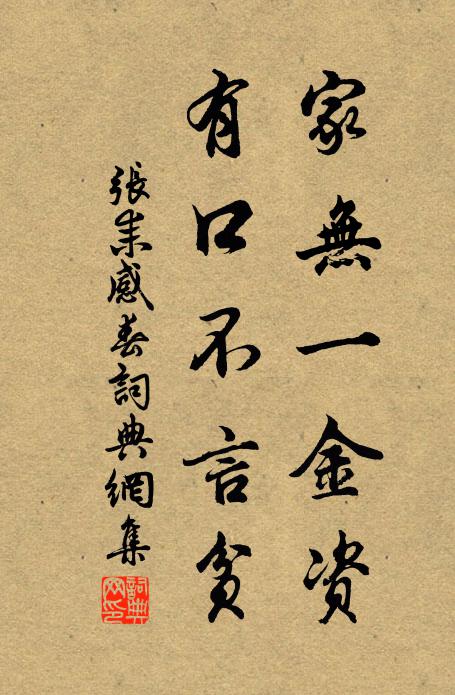 家無一金資
有口不言貧
張耒感春詞典網集
詞典
网印